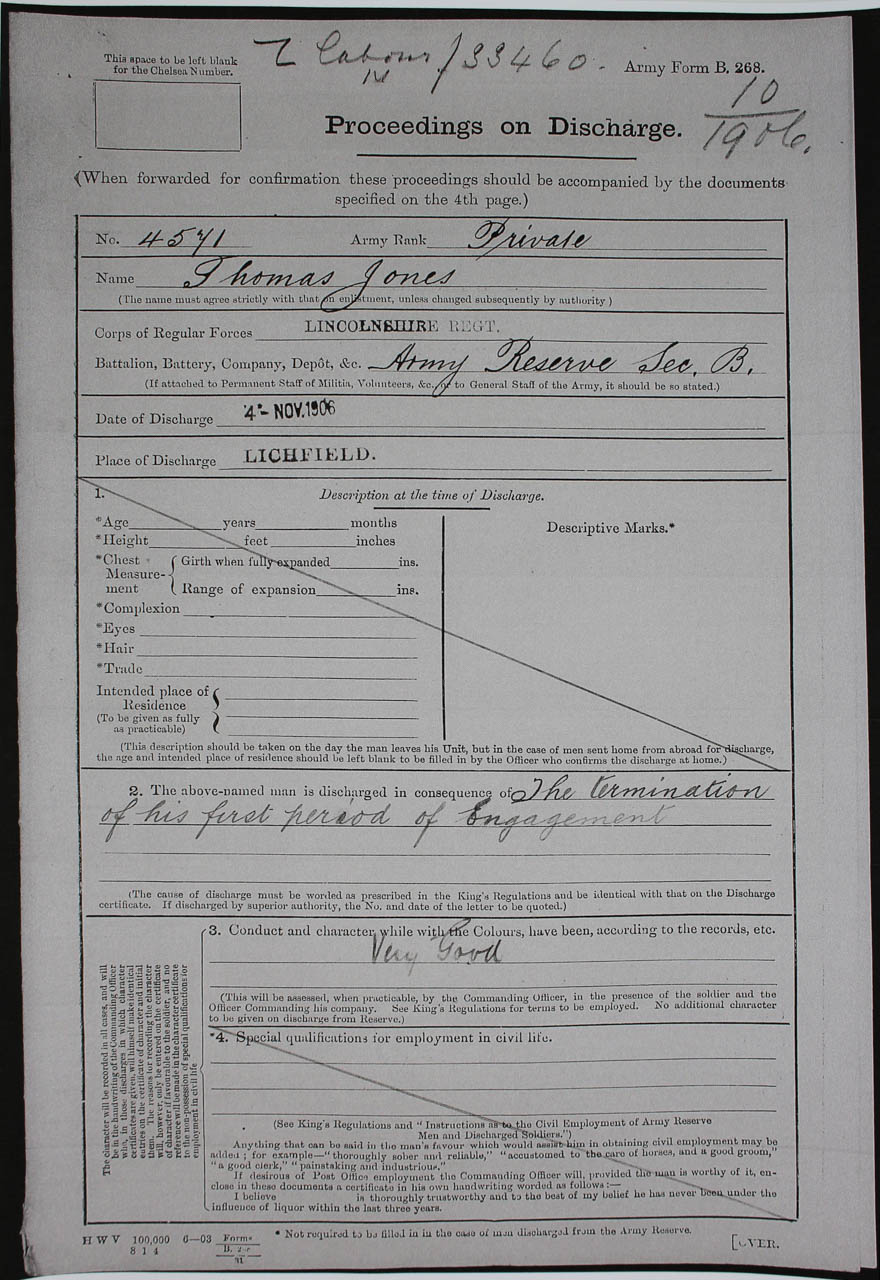 This space to be left blank
for the Chelsea Number.
Labour / 33460.
Army Form B. 268.
10
1906.
Proceedings on Discharge.
(When forwarded for confirmation these proceedings should be accompanied by the documents
specified on the 4th page.)
No. 4571 Army Rank Private
Name Thomas Jones
(The name must agree strictly with that on enlistment, unless changed subsequently by authority)
Corps of Regular Forces LINCOLNSHIRE REGT.
Battalion, Battery, Company, Depôt, &c. Army Reserve Sec. B.
(If attached to Permanent Staff of Militia, Volunteers, &c., or to General Staff of the Army, it should be so stated.)
Date of Discharge 4 - NOV. 1906
Place of Discharge LICHFIELD.
1. Description at the time of Discharge.
*Age years months
*Height feet inches
*Chest Measurement { Girth when fully expanded ins.
Range of expansion ins.
*Complexion
*Eyes
*Hair
*Trade
Intended place of
Residence
(To be given as fully
as practicable)
Descriptive Marks.*
(This description should be taken on the day the man leaves his Unit, but in the case of men sent home from abroad for discharge,
the age and intended place of residence should be left blank to be filled in by the Officer who confirms the discharge at home.)
2. The above-named man is discharged in consequence of The termination
of his first period of Engagement
(The cause of discharge must be worded as prescribed in the King's Regulations and be identical with that on the Discharge
certificate. If discharged by superior authority, the No. and date of the letter to be quoted.)
The character will be recorded in all cases, and will
be in the handwriting of the Commanding Officer
who, in those discharges in which character
certificates are given, will himself make identical
entries on the certificate of character and initial
them. The reasons for recording the character
will, however, only be entered on the certificate
of character if favourable to the soldier, and no
reference will be made in the character certificate
to the non-possession of special qualifications for
employment in civil life
3. Conduct and character while with the Colours, have been, according to the records, etc.
Very Good
(This will be assessed, when practicable, by the Commanding Officer, in the presence of the soldier and the
Officer Commanding his company. See King's Regulations for terms to be employed. No additional character
to be given on discharge from Reserve.)
*4. Special qualifications for employment in civil life.
(See King's Regulations and "Instructions as to the Civil Employment of Army Reserve
Men and Discharged Soldiers.")
Anything that can be said in the man's favour which would assist him in obtaining civil employment may be
added; for example—"thoroughly sober and reliable," "accustomed to the care of horses, and a good groom,"
"a good clerk," "painstaking and industrious."
If desirous of Post Office employment the Commanding Officer will, provided the man is worthy of it, en-
close in these documents a certificate in his own handwriting worded as follows:—
I believe is thoroughly trustworthy and to the best of my belief he has never been under the
influence of liquor within the last three years.
* Not required to be filled in in the case of men discharged from the Army Reserve.
H W V 100,000 6—03 Forms
8 1 4
[OVER.